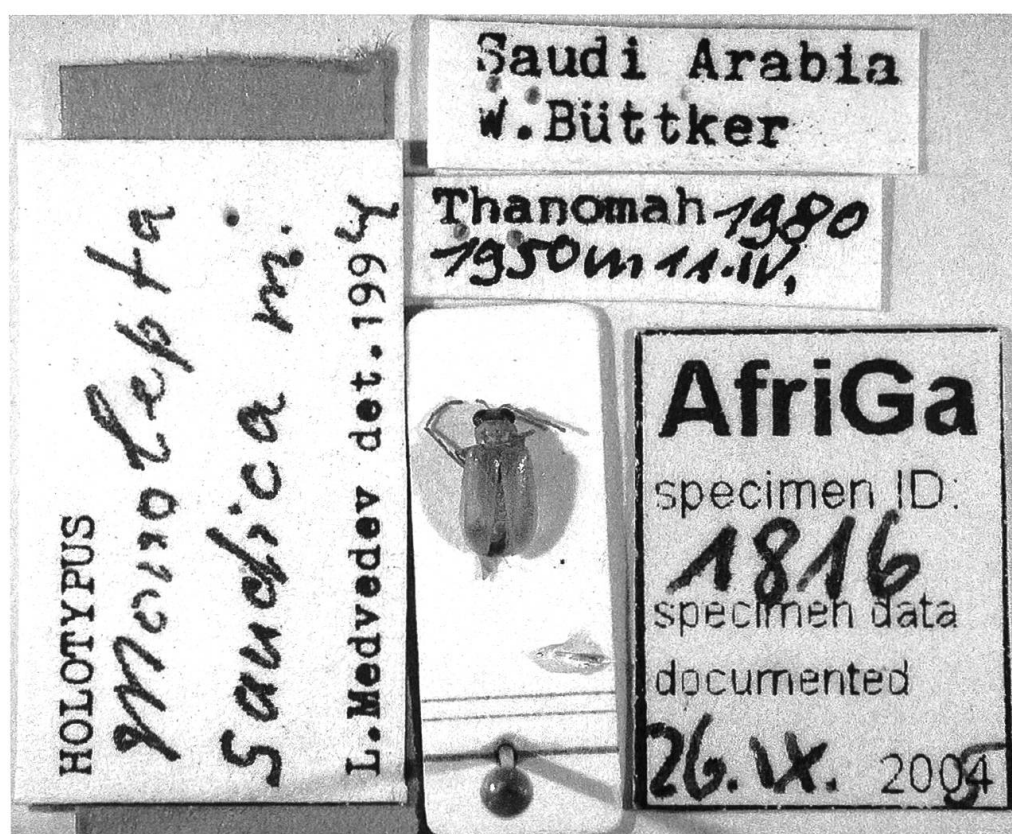 HOLOTYPUS
Monolepta
saudica m.
L.Medvedev det.1994
Saudi Arabia
W.Büttker
Thanomah 1980
1950m 11.IV.
AfriGa
specimen ID:
1816
specimen data
documented
26.IX. 2005